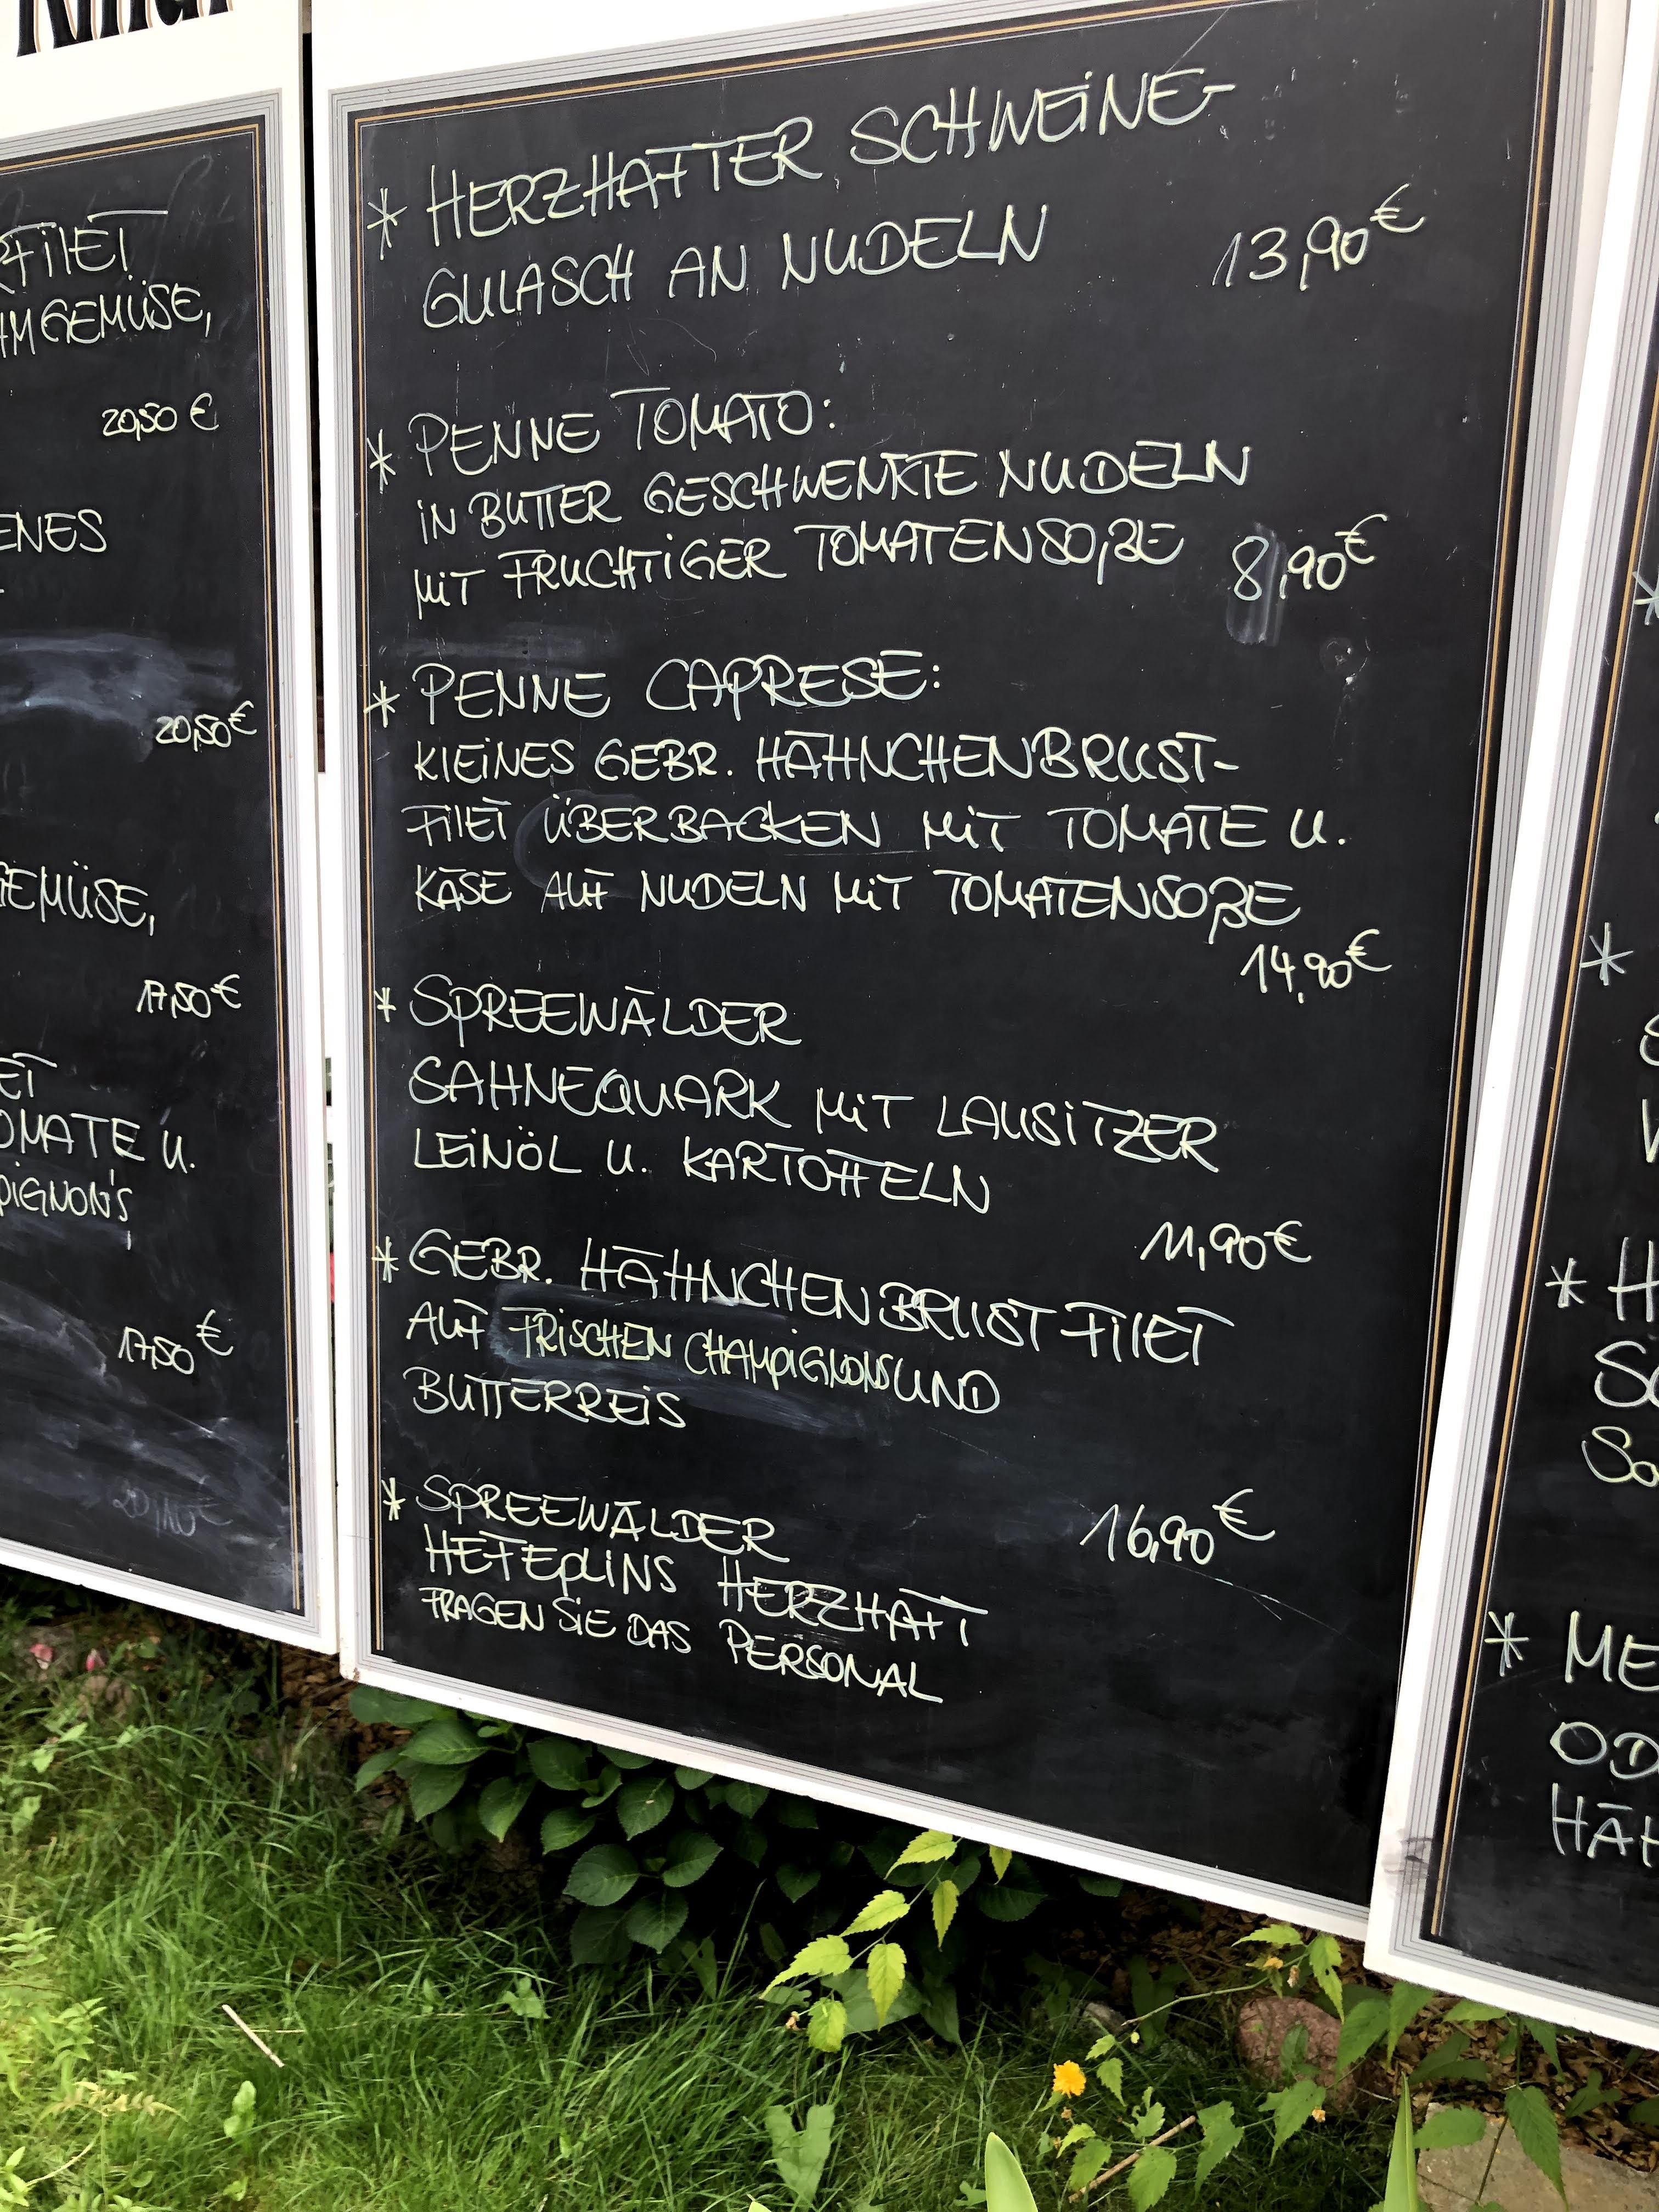 RFILET
HMGEMÜSE,
20,50 €
ENES
20,50 €
GEMÜSE,
17,50 €
ET
OMATE U.
PIGNON'S,
17,50 €
* HERZHAFTER SCHWEINE-
GULASCH AN NUDELN 13,90 €
* PENNE TOMATO:
IN BUTTER GESCHWENKTE NUDELN
MIT FRUCHTIGER TOMATENSOßE 8,90 €
* PENNE CAPRESE:
KLEINES GEBR. HÄHNCHENBRUST-
FILET ÜBERBACKEN MIT TOMATE U.
KÄSE AUF NUDELN MIT TOMATENSOßE
14,90 €
* SPREEWÄLDER
SAHNEQUARK MIT LAUSITZER
LEINÖL U. KARTOFFELN
11,90 €
* GEBR. HÄHNCHENBRUSTFILET
AUF FRISCHEN CHAMPIGNONS UND
BUTTERREIS
16,90 €
* SPREEWÄLDER
HEFEPLINS HERZHAFT
FRAGEN SIE DAS PERSONAL
*
*
* H
SC
So
* ME
OD
HÄH